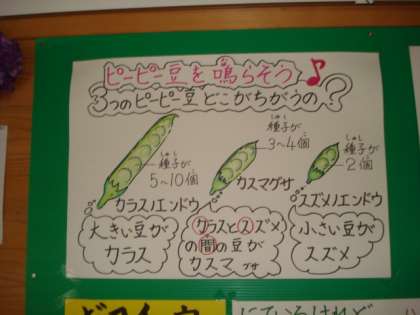 ピーピー豆を鳴らそう♪
3つのピーピー豆どこがちがうの?
しゅし
種子が
5〜10個
カラスノエンドウ
大きい豆が
カラス
しゅし
種子が
3〜4個
カスマグサ
カラスとスズメ
の間の豆が
カスマグサ
しゅし
種子が
2個
スズメノエンドウ
小さい豆が
スズメ
にているけれど